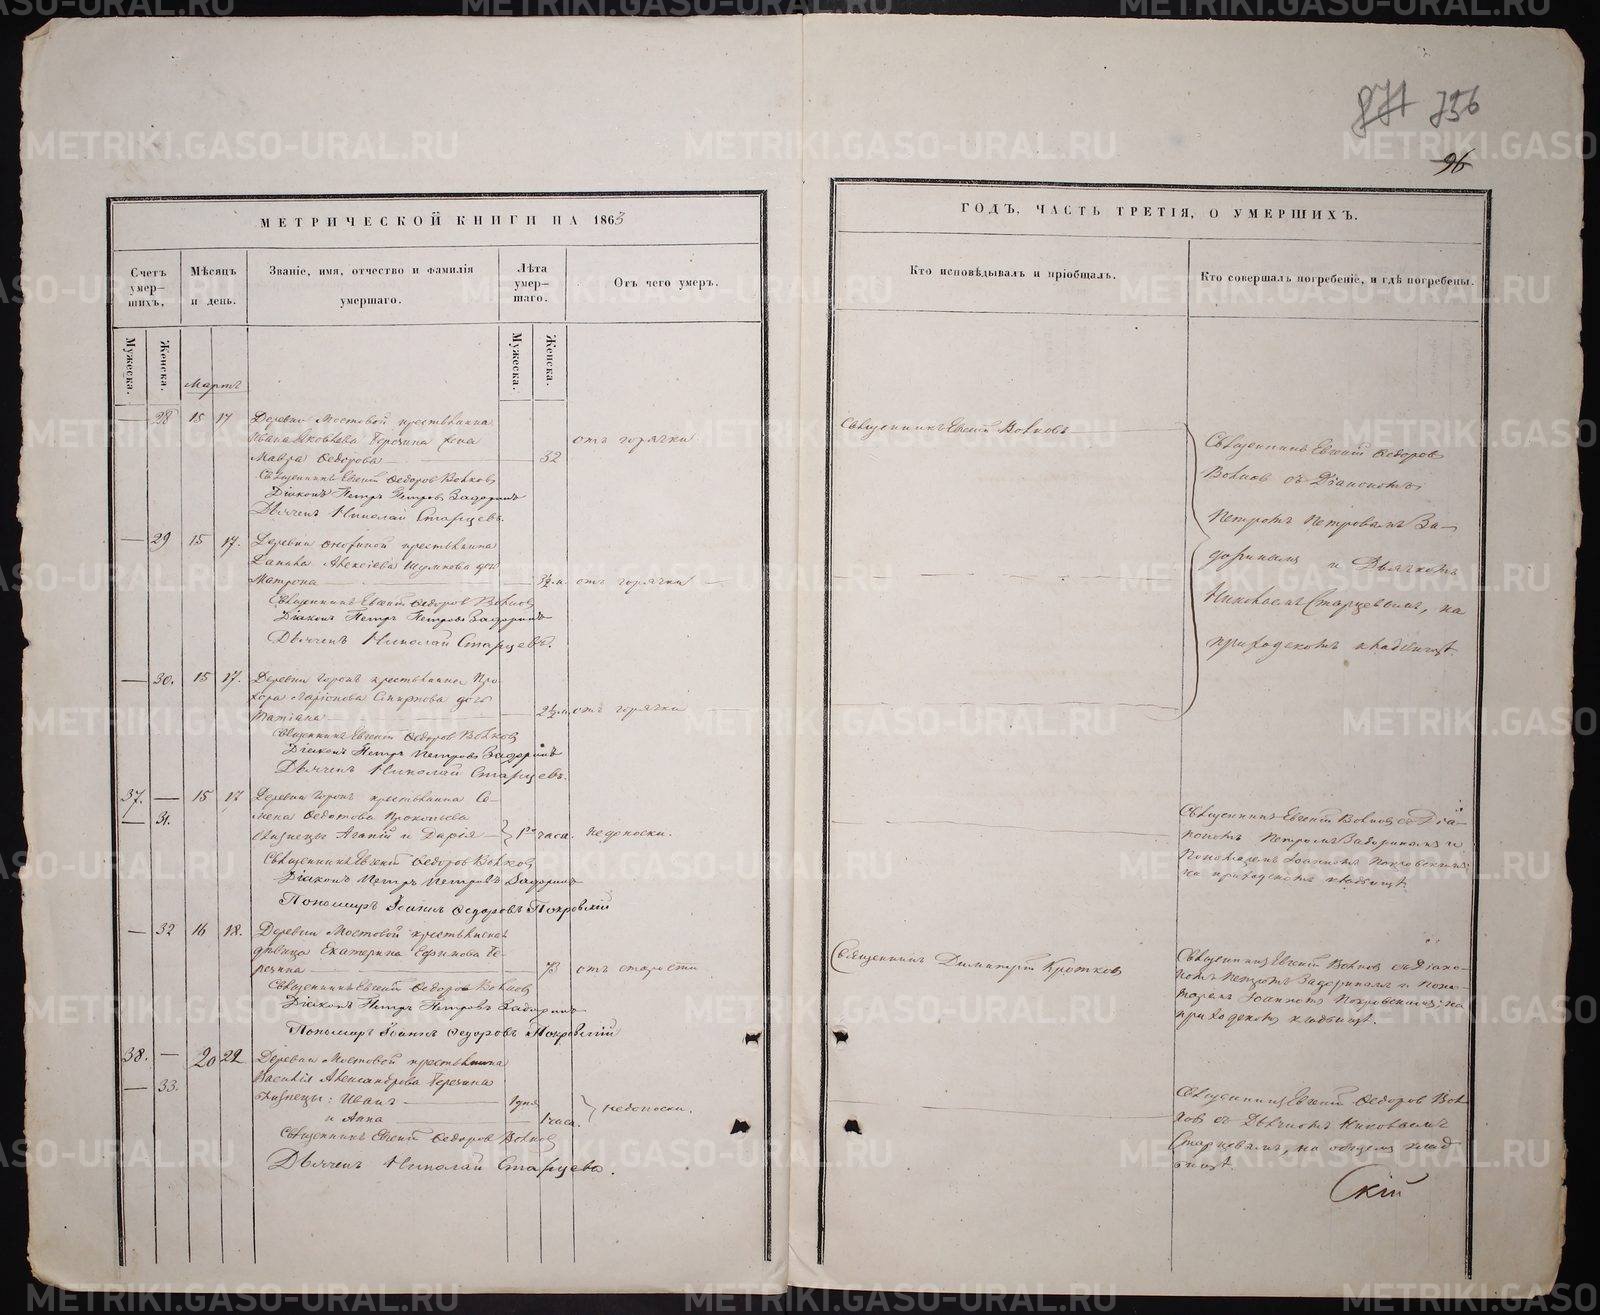 871 756
96
МЕТРИЧЕСКОЙ КНИГИ НА 1863
ГОДЪ, ЧАСТЬ ТРЕТІЯ, О УМЕРШИХЪ.
Счетъ умер-шихъ.
Мѣсяцъ и день.
Званіе, имя, отчество и фамилія умершаго.
Лѣта умер-шаго.
Отъ чего умеръ.
Кто исповѣдывалъ и пріобщалъ.
Кто совершалъ погребеніе, и гдѣ погребены.
Мужеска.
Женска.
Мартъ
Мужеска.
Женска.
28 15 17 Деревни Мостовой крестьянина
Ивана Яковлева жена
Мавра Федорова 32 отъ горячки
Священникъ Евгеній Волковъ
Священникъ Евгеній Федоровъ Волковъ
Діаконъ Петръ Петровъ Задоринъ
Дьячекъ Николай Старцевъ.
29 15 17. Деревни крестьянина
Алексіева Шумкова дочь
Матрона отъ горячки
Священникъ Евгеній Федоровъ Волковъ
Діаконъ Петръ Петровъ Задоринъ
Дьячекъ Николай Старцевъ.
30. 15 17. Деревни крестьянина Про-
хора Ларіонова Смирнова дочь
Татіана отъ горячки
Священникъ Евгеній Федоровъ Волковъ
Діаконъ Петръ Петровъ Задоринъ
Дьячекъ Николай Старцевъ.
Священникъ Евгеній Федоровъ
Волковъ съ Діакономъ
Петромъ Петровымъ За-
доринымъ и Дьячкомъ
Николаемъ Старцевымъ, на
приходскомъ кладбищѣ.
37. 15 17 Деревни крестьянина Се-
31. мена Федотова Прокопьева
близнецы Агапій и Дарія часа. недоноски.
Священникъ Евгеній Федоровъ Волковъ
Діаконъ Петръ Петровъ Задоринъ
Пономарь Іоаннъ Федоровъ Покровскій
Священникъ Евгеній Волковъ съ Діа-
кономъ Петромъ Задоринымъ и
Пономаремъ Іоанномъ Покровскимъ:
на приходскомъ кладбищѣ.
32 16 18. Деревни Мостовой крестьянская
дѣвица Екатерина Ефимова
73 отъ старости
Священникъ Димитрій Кротковъ
Священникъ Евгеній Федоровъ Волковъ
Діаконъ Петръ Петровъ Задоринъ
Пономарь Іоаннъ Федоровъ Покровскій
Священникъ Евгеній Волковъ съ Діако-
номъ Петромъ Задоринымъ и Поно-
маремъ Іоанномъ Покровскимъ: на
приходскомъ кладбищѣ.
38. 20 22 Деревни Мостовой крестьянина
33. Василія Александрова
близнецы: Иванъ 1 дня
и Анна 1 часа. недоноски.
Священникъ Евгеній Федоровъ Волковъ
Дьячекъ Николай Старцевъ.
Священникъ Евгеній Федоровъ Вол-
ковъ съ Дьячкомъ Николаемъ
Старцевымъ, на общемъ клад-
бищѣ.
Скій